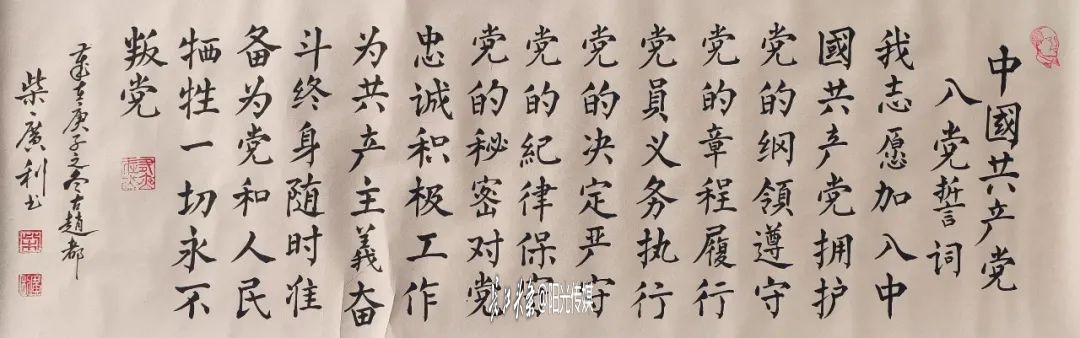 中國共产党
入党誓词
我志愿加入中
國共产党拥护
党的纲領遵守
党的章程履行
党員义务执行
党的决定严守
党的紀律保守
党的秘密对党
忠诚积极工作
为共产主義奋
斗终身随时准
备为党和人民
牺牲一切永不
叛党
歲在庚子之冬於趙都
柴廣利书
@阳光传媒